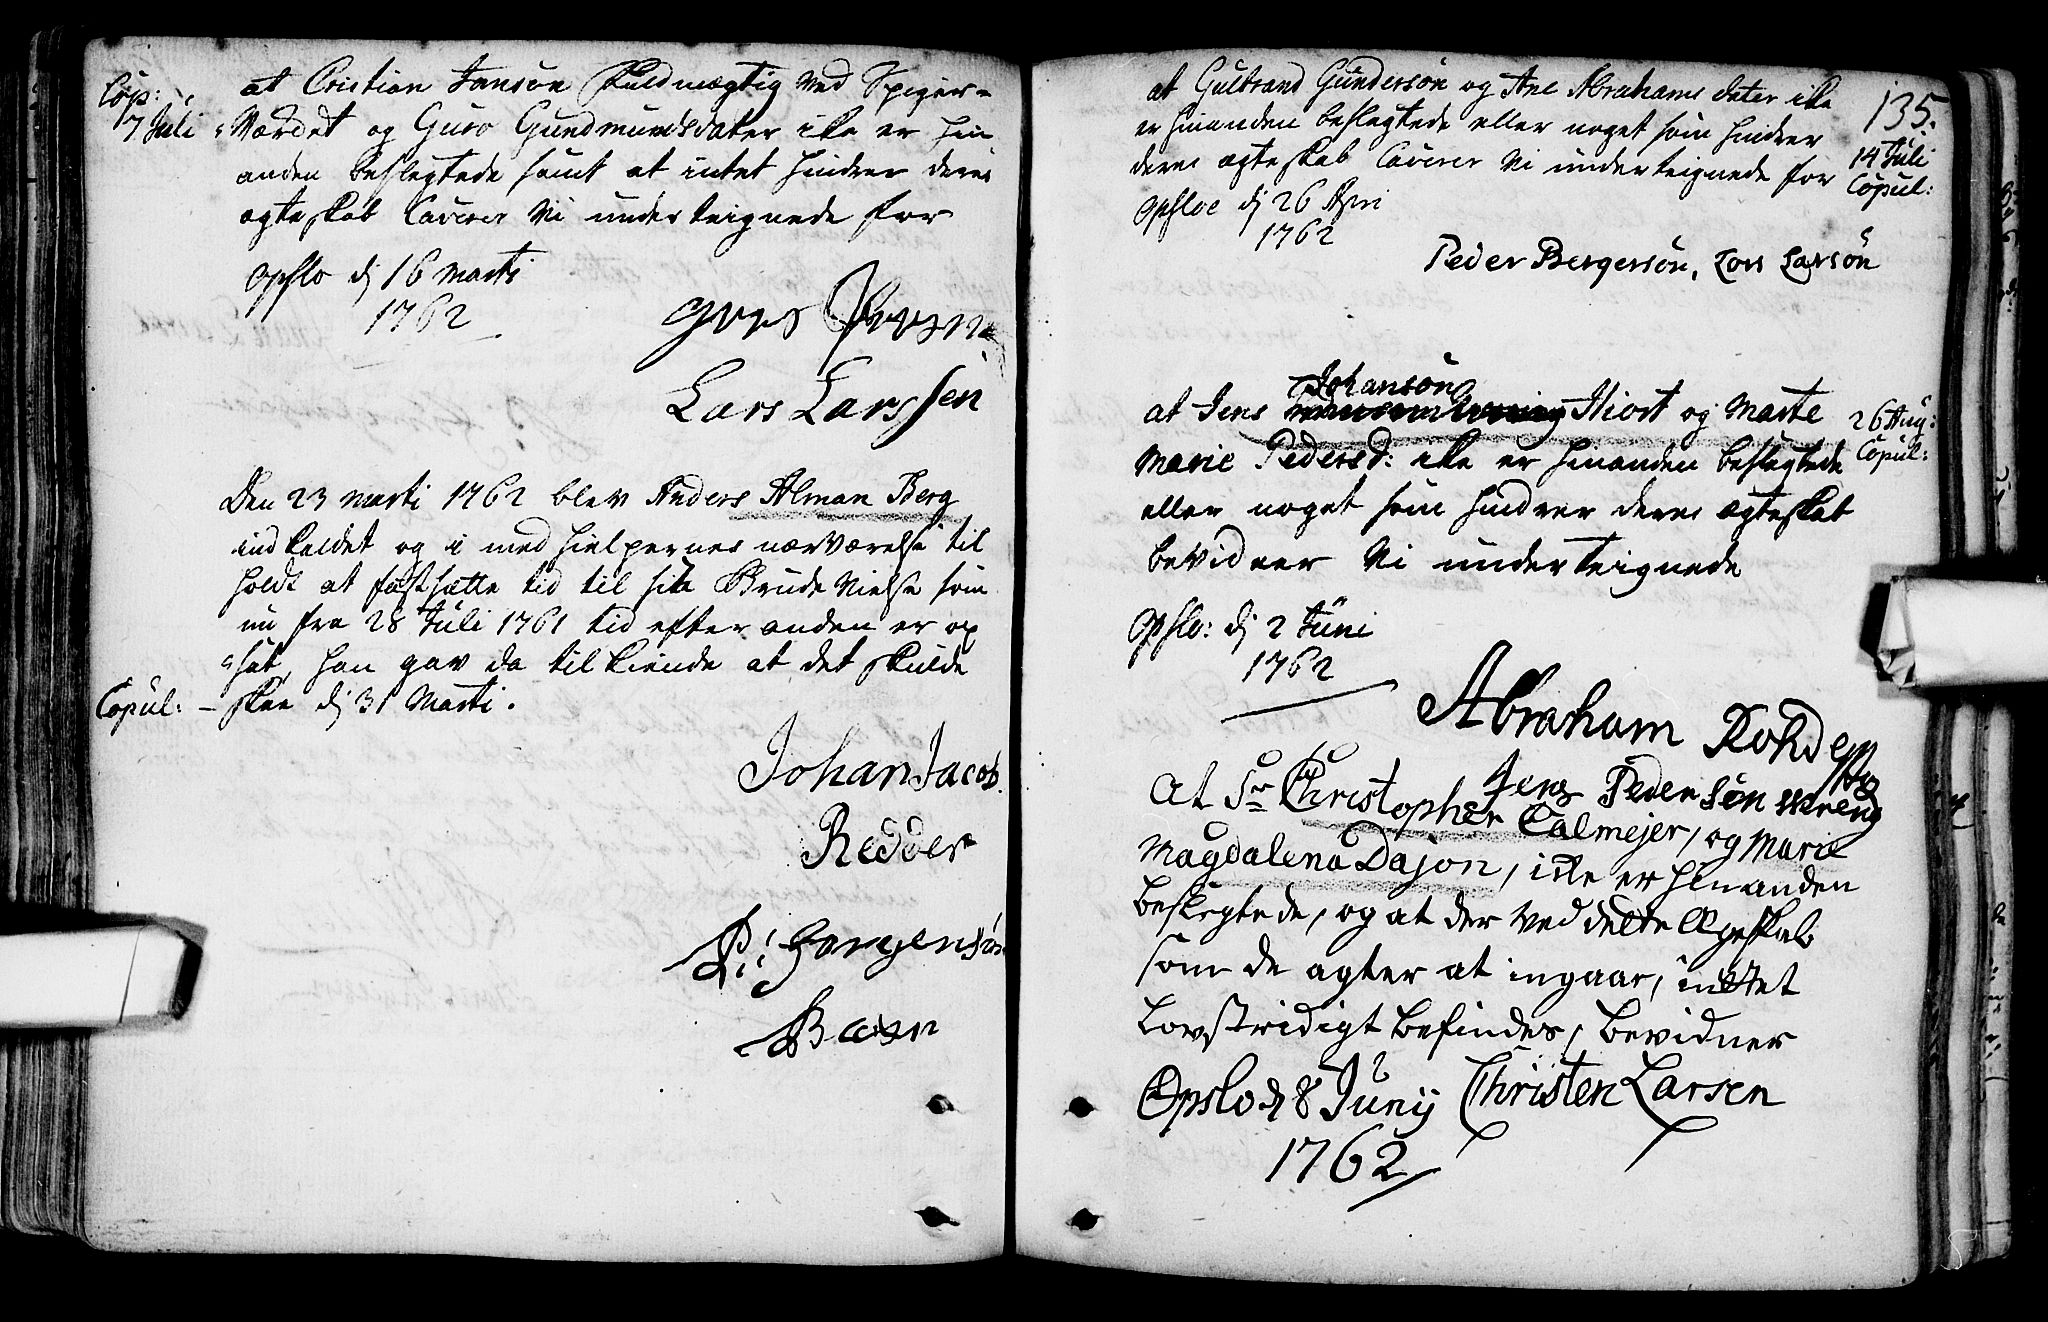 Cop:
7 Juli
at Cristian Jansøn Fuldmægtig ved Spiger-
Værdet og Guro Gundmundsdater ike er hin
anden beslegtede samt at intet hindrer deres
ægteskab Caverer Vi underteignede for
Opslo dj 16 Marti
1762
Lars Larssen
Den 23 Marti 1762 blev Anders Alman Berg
indkaldet og i medhielpernes nærværelse til
holdt at fastsætte tid til sin Brude Vielse som
nu fra 28 Juli 1761 tid efter anden er op
sat, han gav da tilkiende at det skulde
Copul: - skee dj 31 Marti.
Johan Jacob
Redder
Jørgensøn
135.
at Gulbrand Gundersøn og Ane Abrahams dater ike
er hinanden beslegtede eller noget som hindrer
deres ægteskab Caverer Vi underteignede for
14 Juli
Copul:
Opsloe dj 26 Apri
1762
Peder Bergersøn, Lars Larsøn
Johansøn
at Jens Hiort og Marte
26 Aug:
Copul:
Marie Pedersd: ike er hinanden beslegtede
eller noget som hindrer deres ægteskab
bevidner Vi underteignede
Opslo: dj 2 Juni
1762
Abraham Rohde
Jens Pedersøn Wreng
At Sr Christopher Calmejer, og Marie
Magdalena Dajon, icke er hinanden
beslegtede, og at der ved dette Ægteskab
som de agter at ingaar, intet
Lovstridigt befindes, bevidner
Opslo dj 8 Junij Christen Larsen
1762